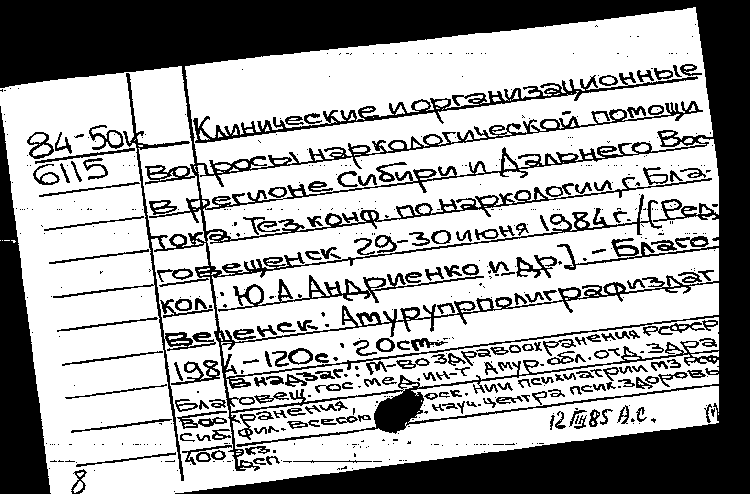 84-50к
6115
Клинические и организационные
вопросы наркологической помощи
в регионе Сибири и Дальнего Вос-
тока: Тез. конф. по наркологии, г. Бла-
говещенск, 29-30 июня 1984 г. / [Ред.
кол.: Ю.А. Андриенко и др.]. - Благо-
вещенск: Амурупрполиграфиздат
1984. - 120 с.; 20 см.
В надзаг.: М-во здравоохранения РСФСР
Благовещ. гос. мед. ин-т, Амур. обл. отд. здра
воохранения, Моск. НИИ психиатрии МЗ РСФ
Сиб. фил. Всесоюз. науч. центра псих. здоровь
400 экз.
ДСП
12 III 85 А.С.
М
8